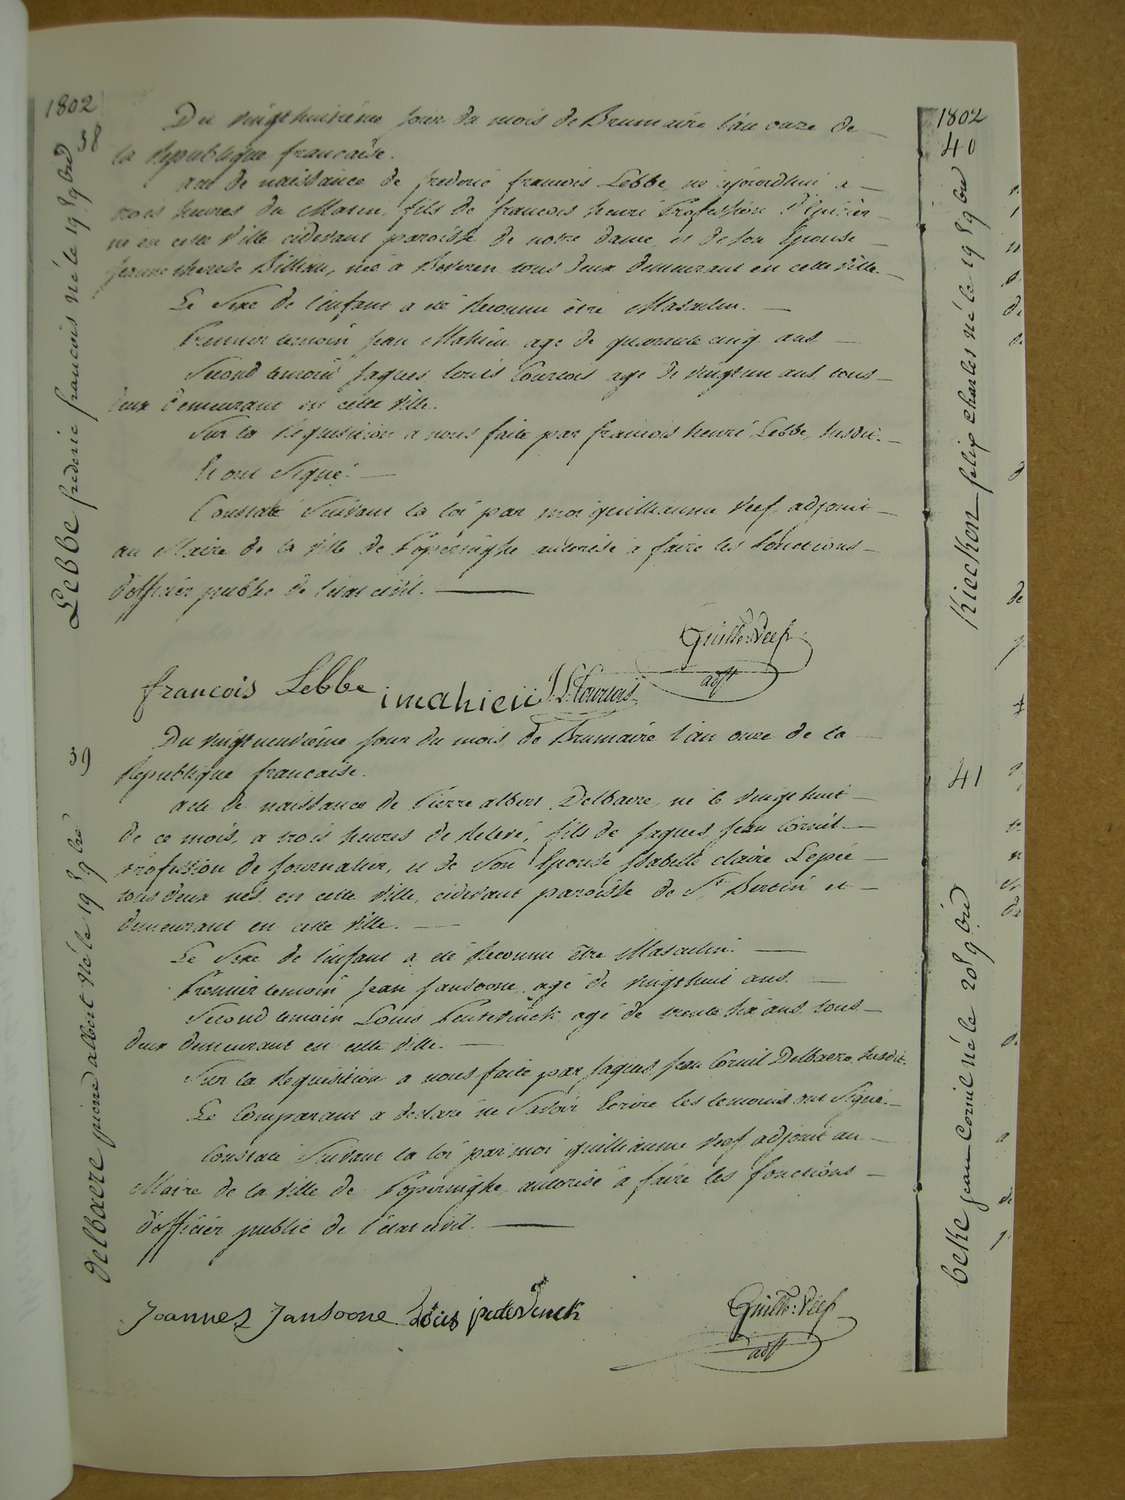 1802
38
Lebbe frederic francois né le 19 9bre
Du vingthuitième jour du mois de Brumaire l'an onze de
la Republique francaise.
acte de naissance de frederic francois Lebbe, né ajourdhui a
trois heures du Matin, fils de francois henri Profession
né en cette Ville cidevant paroisse de notre dame, et de son Epouse
jeanne therese née a tous deux demeurant en cette ville.
Le Sexe de l'enfant a été Reconnu être Masculin.
Premier temoin jean Mahieu age de quarante cinq ans
Second temoin jaques louis Courtois age de vingtun ans, tous
deux demeurant en cette ville.
Sur la Requisition a nous faite par francois henri Lebbe, susdit.
Et ont Signé.
Constaté Suivant la loi par moi guilliaume Veef adjoint
au Maire de la Ville de Poperinghe autorisé a faire les fonctions
d'officier public de l'état civil.
Guille: Veef
adjt
francois Lebbe imahieu J: L: Courtois
39
delbaere pierre albert né le 19 9bre
Du vingtneuvième jour du mois de Brumaire l'an onze de la
Republique francaise.
acte de naissance de Pierre albert Delbaere, né le vingt huit
de ce mois, a trois heures de Relevé, fils de jaques jean Cornil
Profession de journalier, et de Son Epouse isabelle claire Lepée
tous deux nés en cette Ville, cidevant paroisse de St Bertin et
demeurant en cette Ville.
Le Sexe de l'enfant a été Reconnu être Masculin.
Premier temoin jean jansoone agé de vingthuit ans.
Second temoin Louis agé de trente six ans tous
deux demeurant en cette Ville.
Sur la Requisition a nous faite par jaques jean Cornil Delbaere susdit.
Le Comparant a declaré ne Savoir Ecrire les temoins ont Signé.
Constaté Suivant la loi par moi guilliaume Veef adjoint au
Maire de la Ville de Poperinghe autorisé à faire les fonctions
d'officier public de l'état civil.
Joannes Jansoone
Guille: Veef
adjt
1802
40
Kieckon felix charles né le 19 9bre
41
beke jean Cornil né le 20 9bre